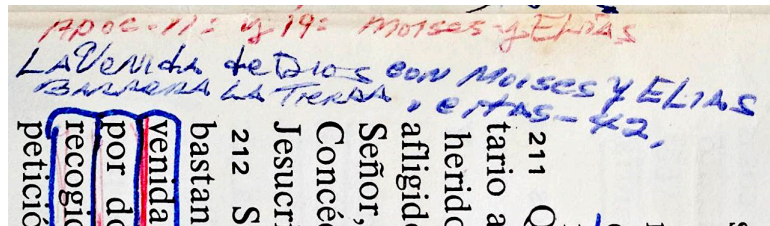 Apoc-11: y 19: Moises-y ELiAs
LA VeNida de Dios con Moises y ELIAS
BARRERA LA TIERRA.
211 Q
tario a
herido
afligido
Señor,
Concéd
Jesucri
212 S
bastan
venida
por do
recogid
petició